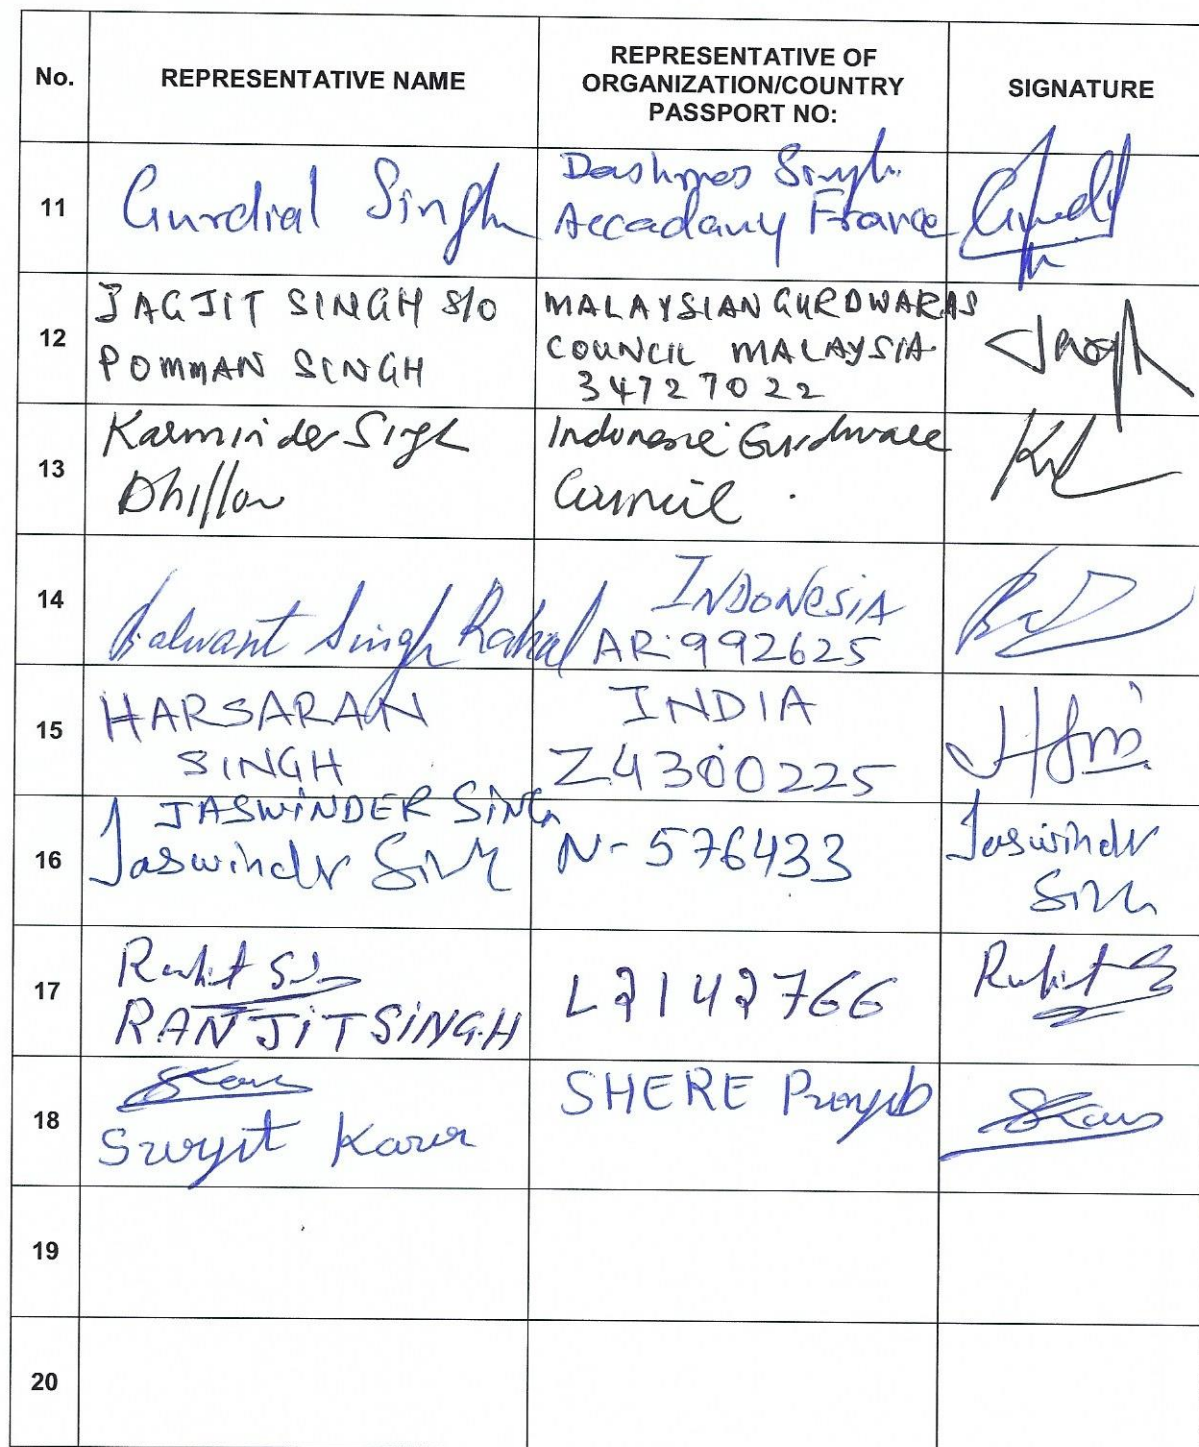 No.
REPRESENTATIVE NAME
REPRESENTATIVE OF
ORGANIZATION/COUNTRY
PASSPORT NO:
SIGNATURE
11
Gurdial Singh
Dashmes Singh
Accadamy France
12
JAGJIT SINGH S/O
POMMAN SINGH
MALAYSIAN GURDWARAS
COUNCIL MALAYSIA
34727022
13
Karminder Singh
Dhillon
Indonesia Gurdwara
Council
14
Balwant Singh
INDONESIA
AR:992625
15
HARSARAN
SINGH
INDIA
Z4300225
16
JASWINDER SINGH
Jaswinder Singh
N-576433
Jaswinder
Singh
17
RANJIT SINGH
L2142766
18
Surjit Kaur
SHERE Punjab
19
20